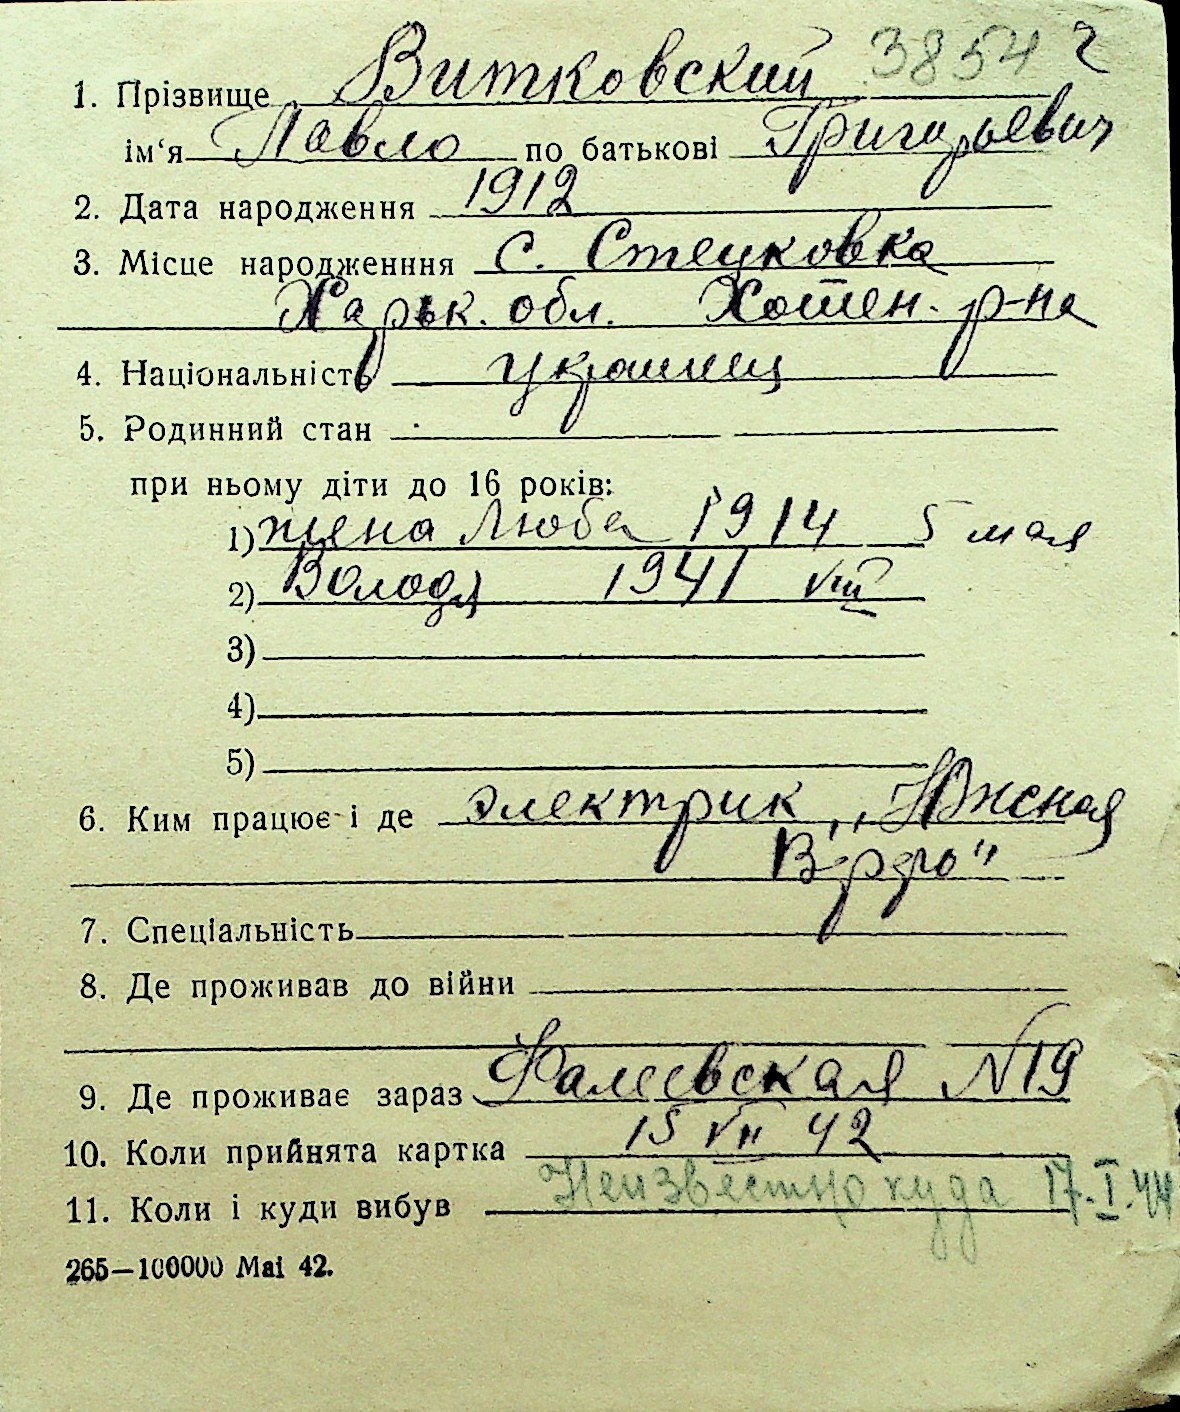 1. Прізвище Витковский 3854 2
ім‘я Павло по батькові Григорьевич
2. Дата народження 1912
3. Місце народженння с. Стецковка
Харьк. обл. Хотен. р-на
4. Національність украинец
5. Родинний стан
при ньому діти до 16 років:
1) жена Люба 1914 5 мая
2) Володя 1941 VIII
3)
4)
5)
6. Ким працює і де электрик „Южная
Верфь"
7. Спеціальність
8. Де проживав до війни
9. Де проживає зараз Фалеевская N 19
10. Коли прийнята картка 15 VII 42
11. Коли і куди вибув Неизвестно куда 17.I.44
265—100000 Маі 42.